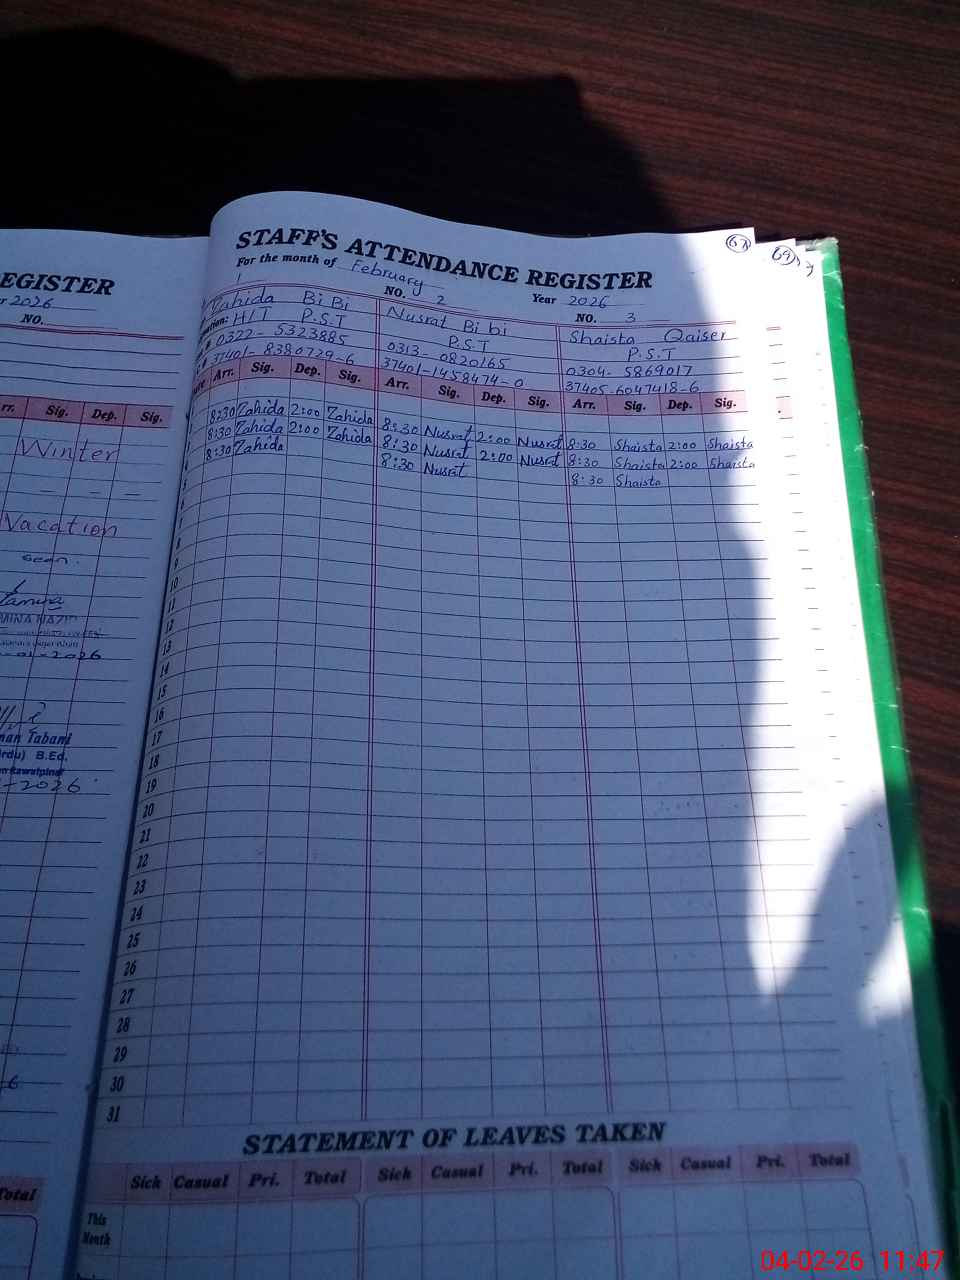 EGISTER
2026
NO.
Sig. Dep. Sig.
Winter
— — —
Vacation
seen.
2026
Tabani
B.Ed.
-2026
Total
67
69
STAFF'S ATTENDANCE REGISTER
For the month of February Year 2026
1 NO. 2 NO. 3
Zahida Bi Bi
HIT P.S.T
0322-5323885
37401-8380729-6
Nusrat Bi bi
P.S.T
0313-0820165
37401-1458474-0
Shaista Qaiser
P.S.T
0304-5869017
37405-6047418-6
Arr. Sig. Dep. Sig. Arr. Sig. Dep. Sig. Arr. Sig. Dep. Sig.
8:30 Zahida 2:00 Zahida 8:30 Nusrat 2:00 Nusrat 8:30 Shaista 2:00 Shaista
8:30 Zahida 2:00 Zahida 8:30 Nusrat 2:00 Nusrat 8:30 Shaista 2:00 Shaista
8:30 Zahida 8:30 Nusrat 8:30 Shaista
5
6
7
8
9
10
11
12
13
14
15
16
17
18
19
20
21
22
23
24
25
26
27
28
29
30
31
STATEMENT OF LEAVES TAKEN
Sick Casual Pri. Total Sick Casual Pri. Total Sick Casual Pri. Total
This
Month
04-02-26 11:47